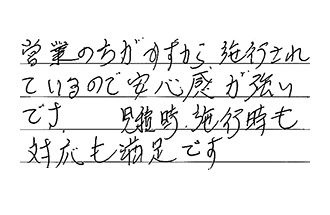 営業のちがすずから施行され
ているので安心感が強い
です 見積時.施行時も
対応も満足です